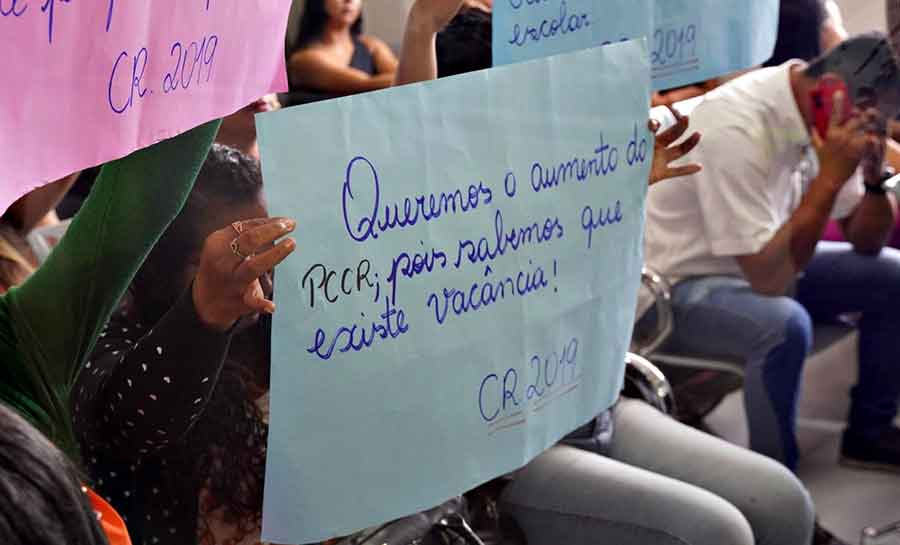 CR. 2019
escolar
2019
Queremos o aumento do
PCCR; pois sabemos que
existe vacância!
CR. 2019